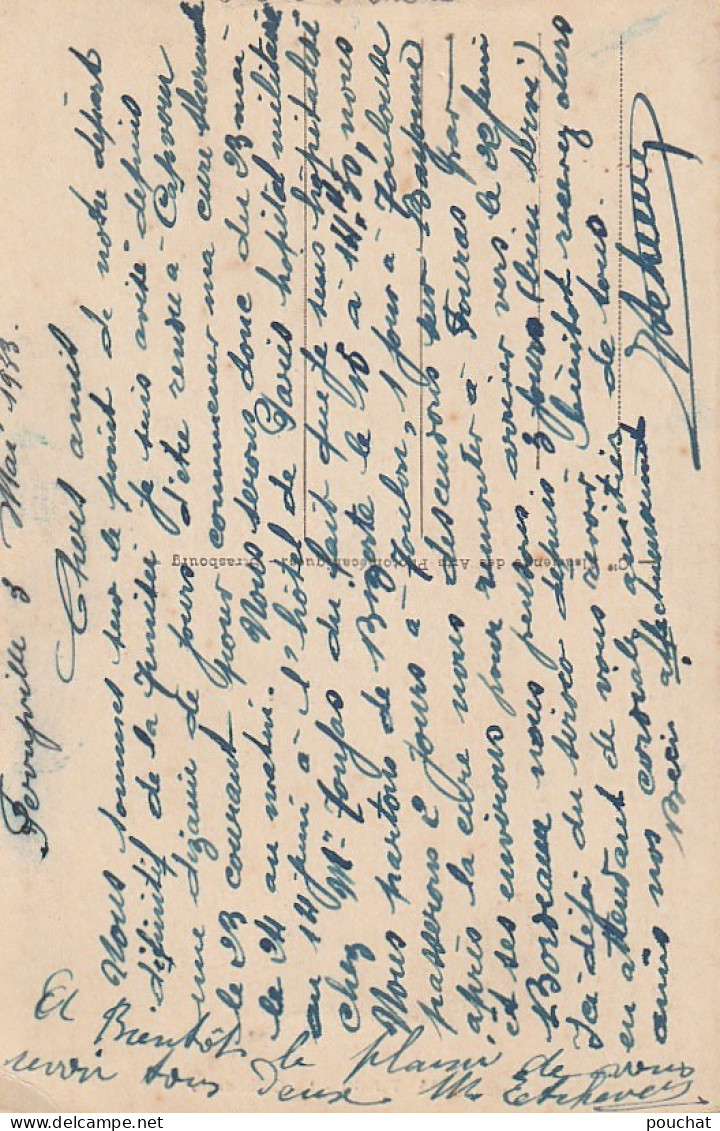 Ferryville 3 Mai 1933.
Chers amis
Nous sommes sur le point de notre départ
définitif de la Tunisie je suis avisé depuis
une dizaine de jours d'être rendu à Capvern
le 23 courant pour commencer ma cure thermale
le 24 au matin. Nous serons donc du 23 mai
au 14 juin à l'hôtel de Paris hôpital militaire
chez Mr. du fait que je suis hospitalisé
Nous partons de Bizerte le 15 à 14h30, nous
passerons 2 jours à Toulon, 1 jour à Toulouse
après la cure nous descendrons sur Bayonne
et ses environs pour remonter à Fouras par
Bordeaux nous pensons arriver vers le 22 juin
Ici déjà du siroco depuis 3 jours (bien servi)
en attendant de vous revoir bientôt recevez chers
amis nos cordiales amitiés de tous.
Bien affectueusement
Etcheverry
Et Bientôt le plaisir de vous
revoir tous deux M. Etcheverry
Cie Alsacienne des Arts Photomécaniques, Strasbourg
pouchat